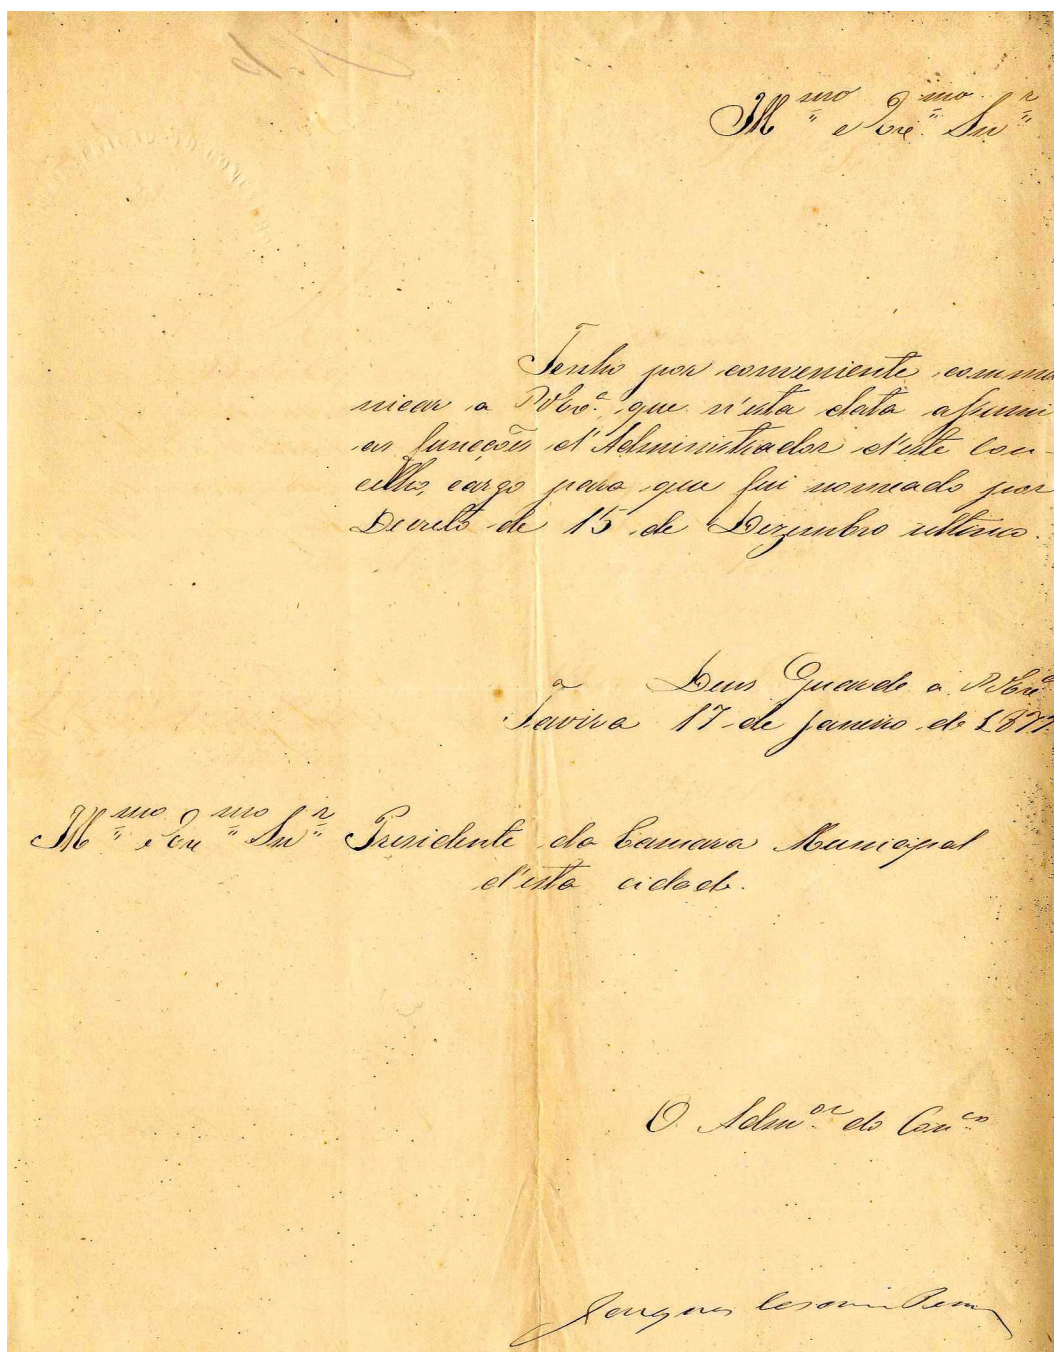 Ill.mo e Exc.mo Snr
Tenho por conveniente commu
nicar a V. Exc.ª que n'esta data assumi
as funcções d'Administrador d'este Con-
celho, cargo para que fui nomeado por
Decreto de 15 de Dezembro ultimo.
Deus Guarde a V. Exc.ª
Tavira 17 de Janeiro de 1877
Ill.mo e Exc.mo Snr Presidente da Camara Municipal
d'esta cidade.
O Adm.or do Con.co